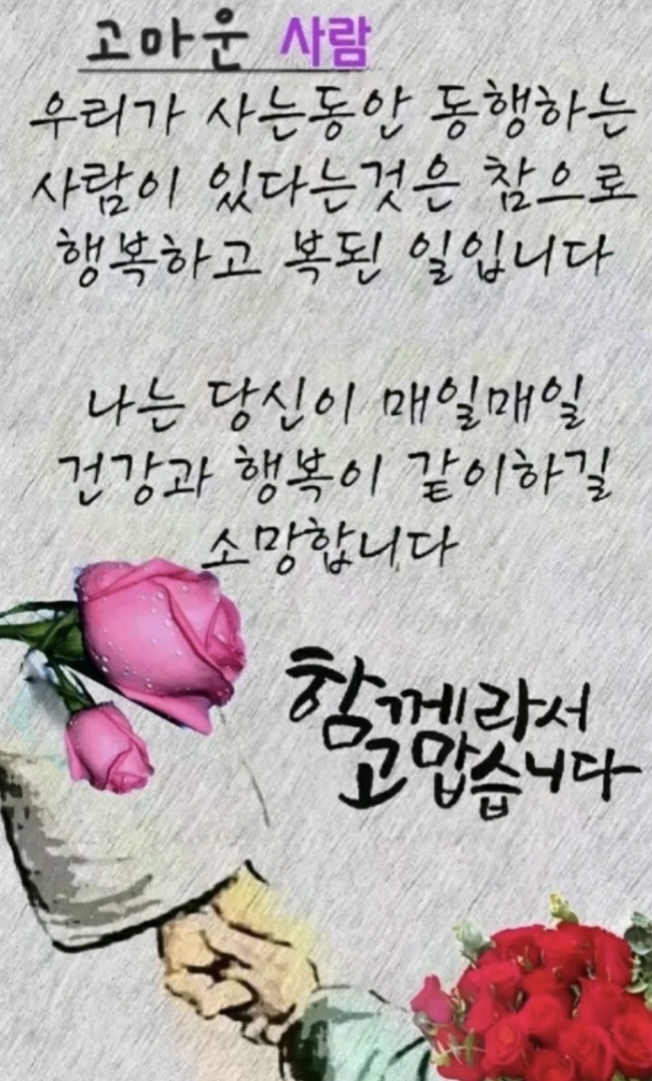 고마운 사람
우리가 사는동안 동행하는
사람이 있다는것은 참으로
행복하고 복된 일입니다
나는 당신이 매일매일
건강과 행복이 같이하길
소망합니다
함께라서
고맙습니다